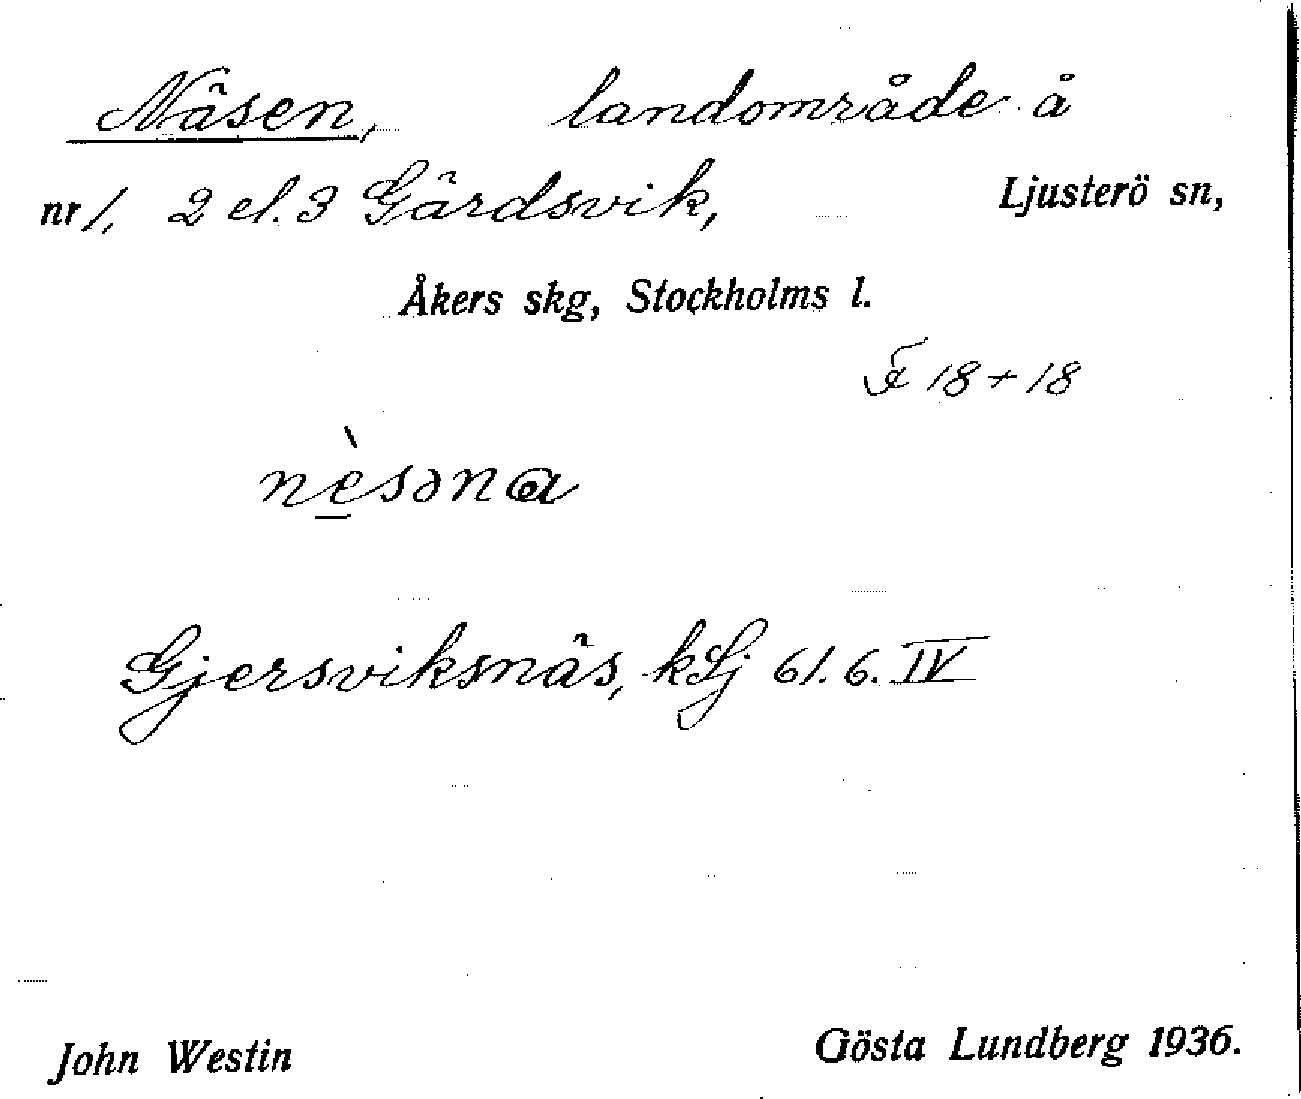 Näsen, landområde å
nr 1, 2 el. 3 Gärdsvik, Ljusterö sn,
Åkers skg, Stockholms l.
18 + 18
nèsəna
Gjersviksnäs, kLj 61.6. IV
John Westin Gösta Lundberg 1936.